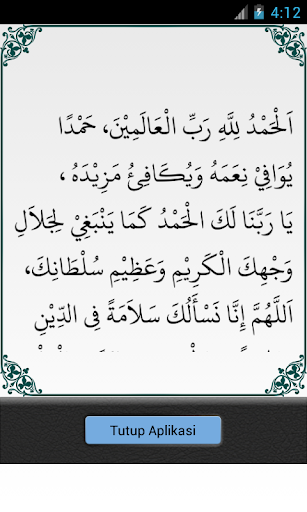 4:12
اَلْحَمْدُ لِلَّهِ رَبِّ الْعَالَمِيْنَ، حَمْدًا
يُوَافِيْ نِعَمَهُ وَيُكَافِئُ مَزِيْدَهُ ،
يَا رَبَّنَا لَكَ الْحَمْدُ كَمَا يَنْبَغِيْ لِجَلاَلِ
وَجْهِكَ الْكَرِيْمِ وَعَظِيْمِ سُلْطَانِكَ،
اَللَّهُمَّ إِنَّا نَسْأَلُكَ سَلاَمَةً فِى الدِّيْنِ
Tutup Aplikasi